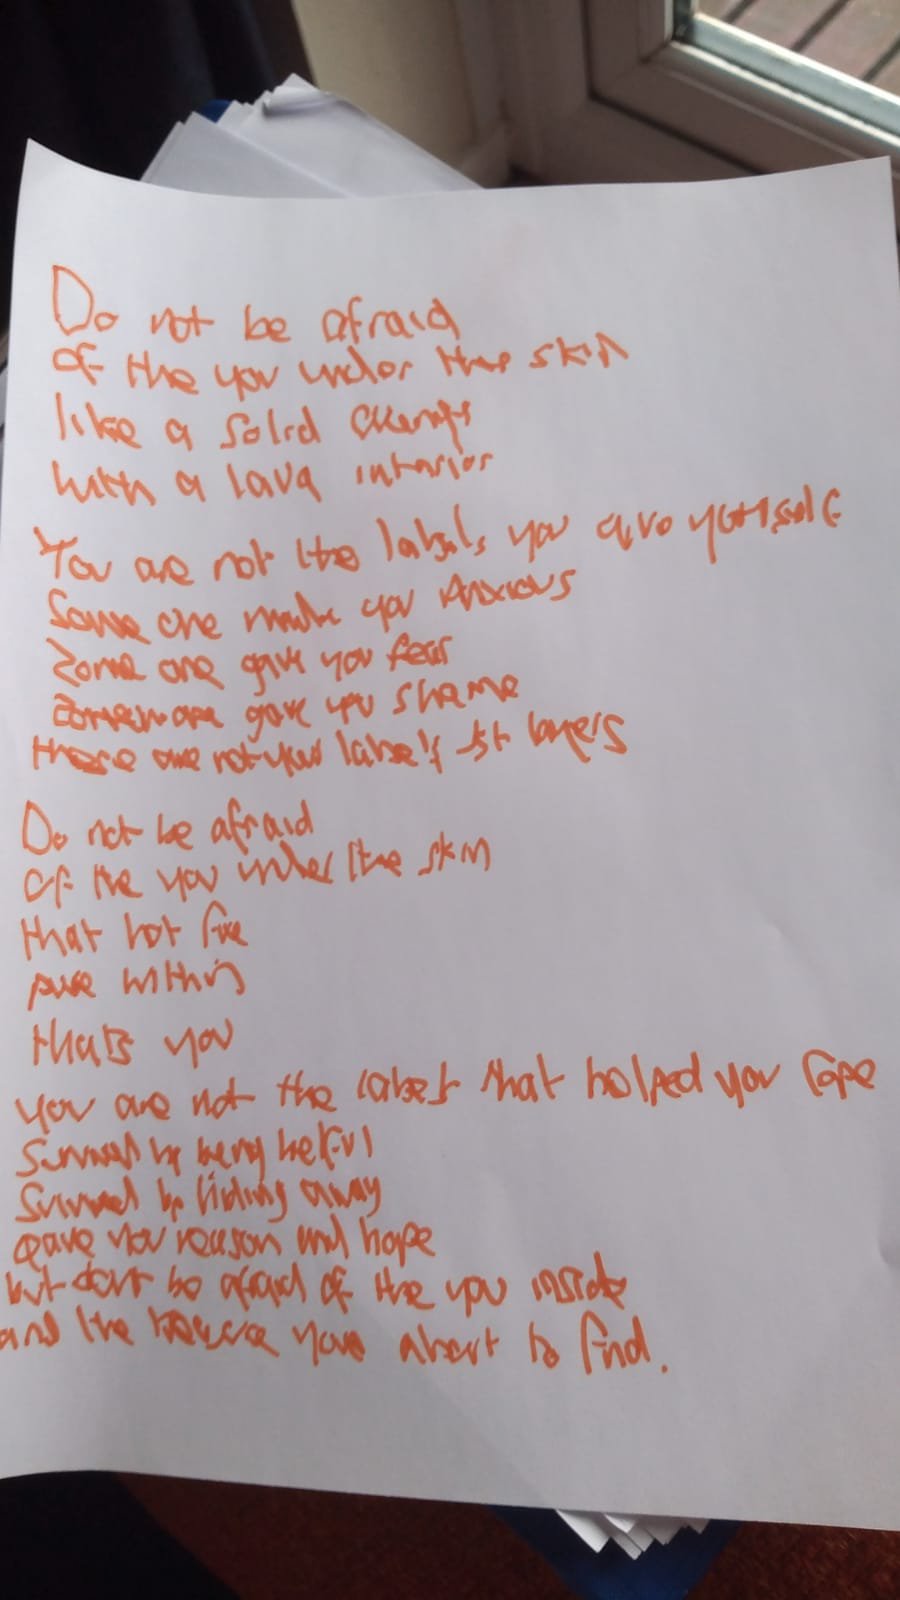 Do not be afraid
of the you under the skin
like a solid
with a lava interior
You are not the labels you give yourself
Some one made you Anxious
Some one gave you fear
Someone gave you shame
these are not your labels just layers
Do not be afraid
of the you under the skin
that hot fire
pure within
thats you
you are not the labels that helped you cope
Survived by being helpful
Survived by hiding away
gave you reason and hope
but dont be afraid of the you inside
and the treasure your about to find.